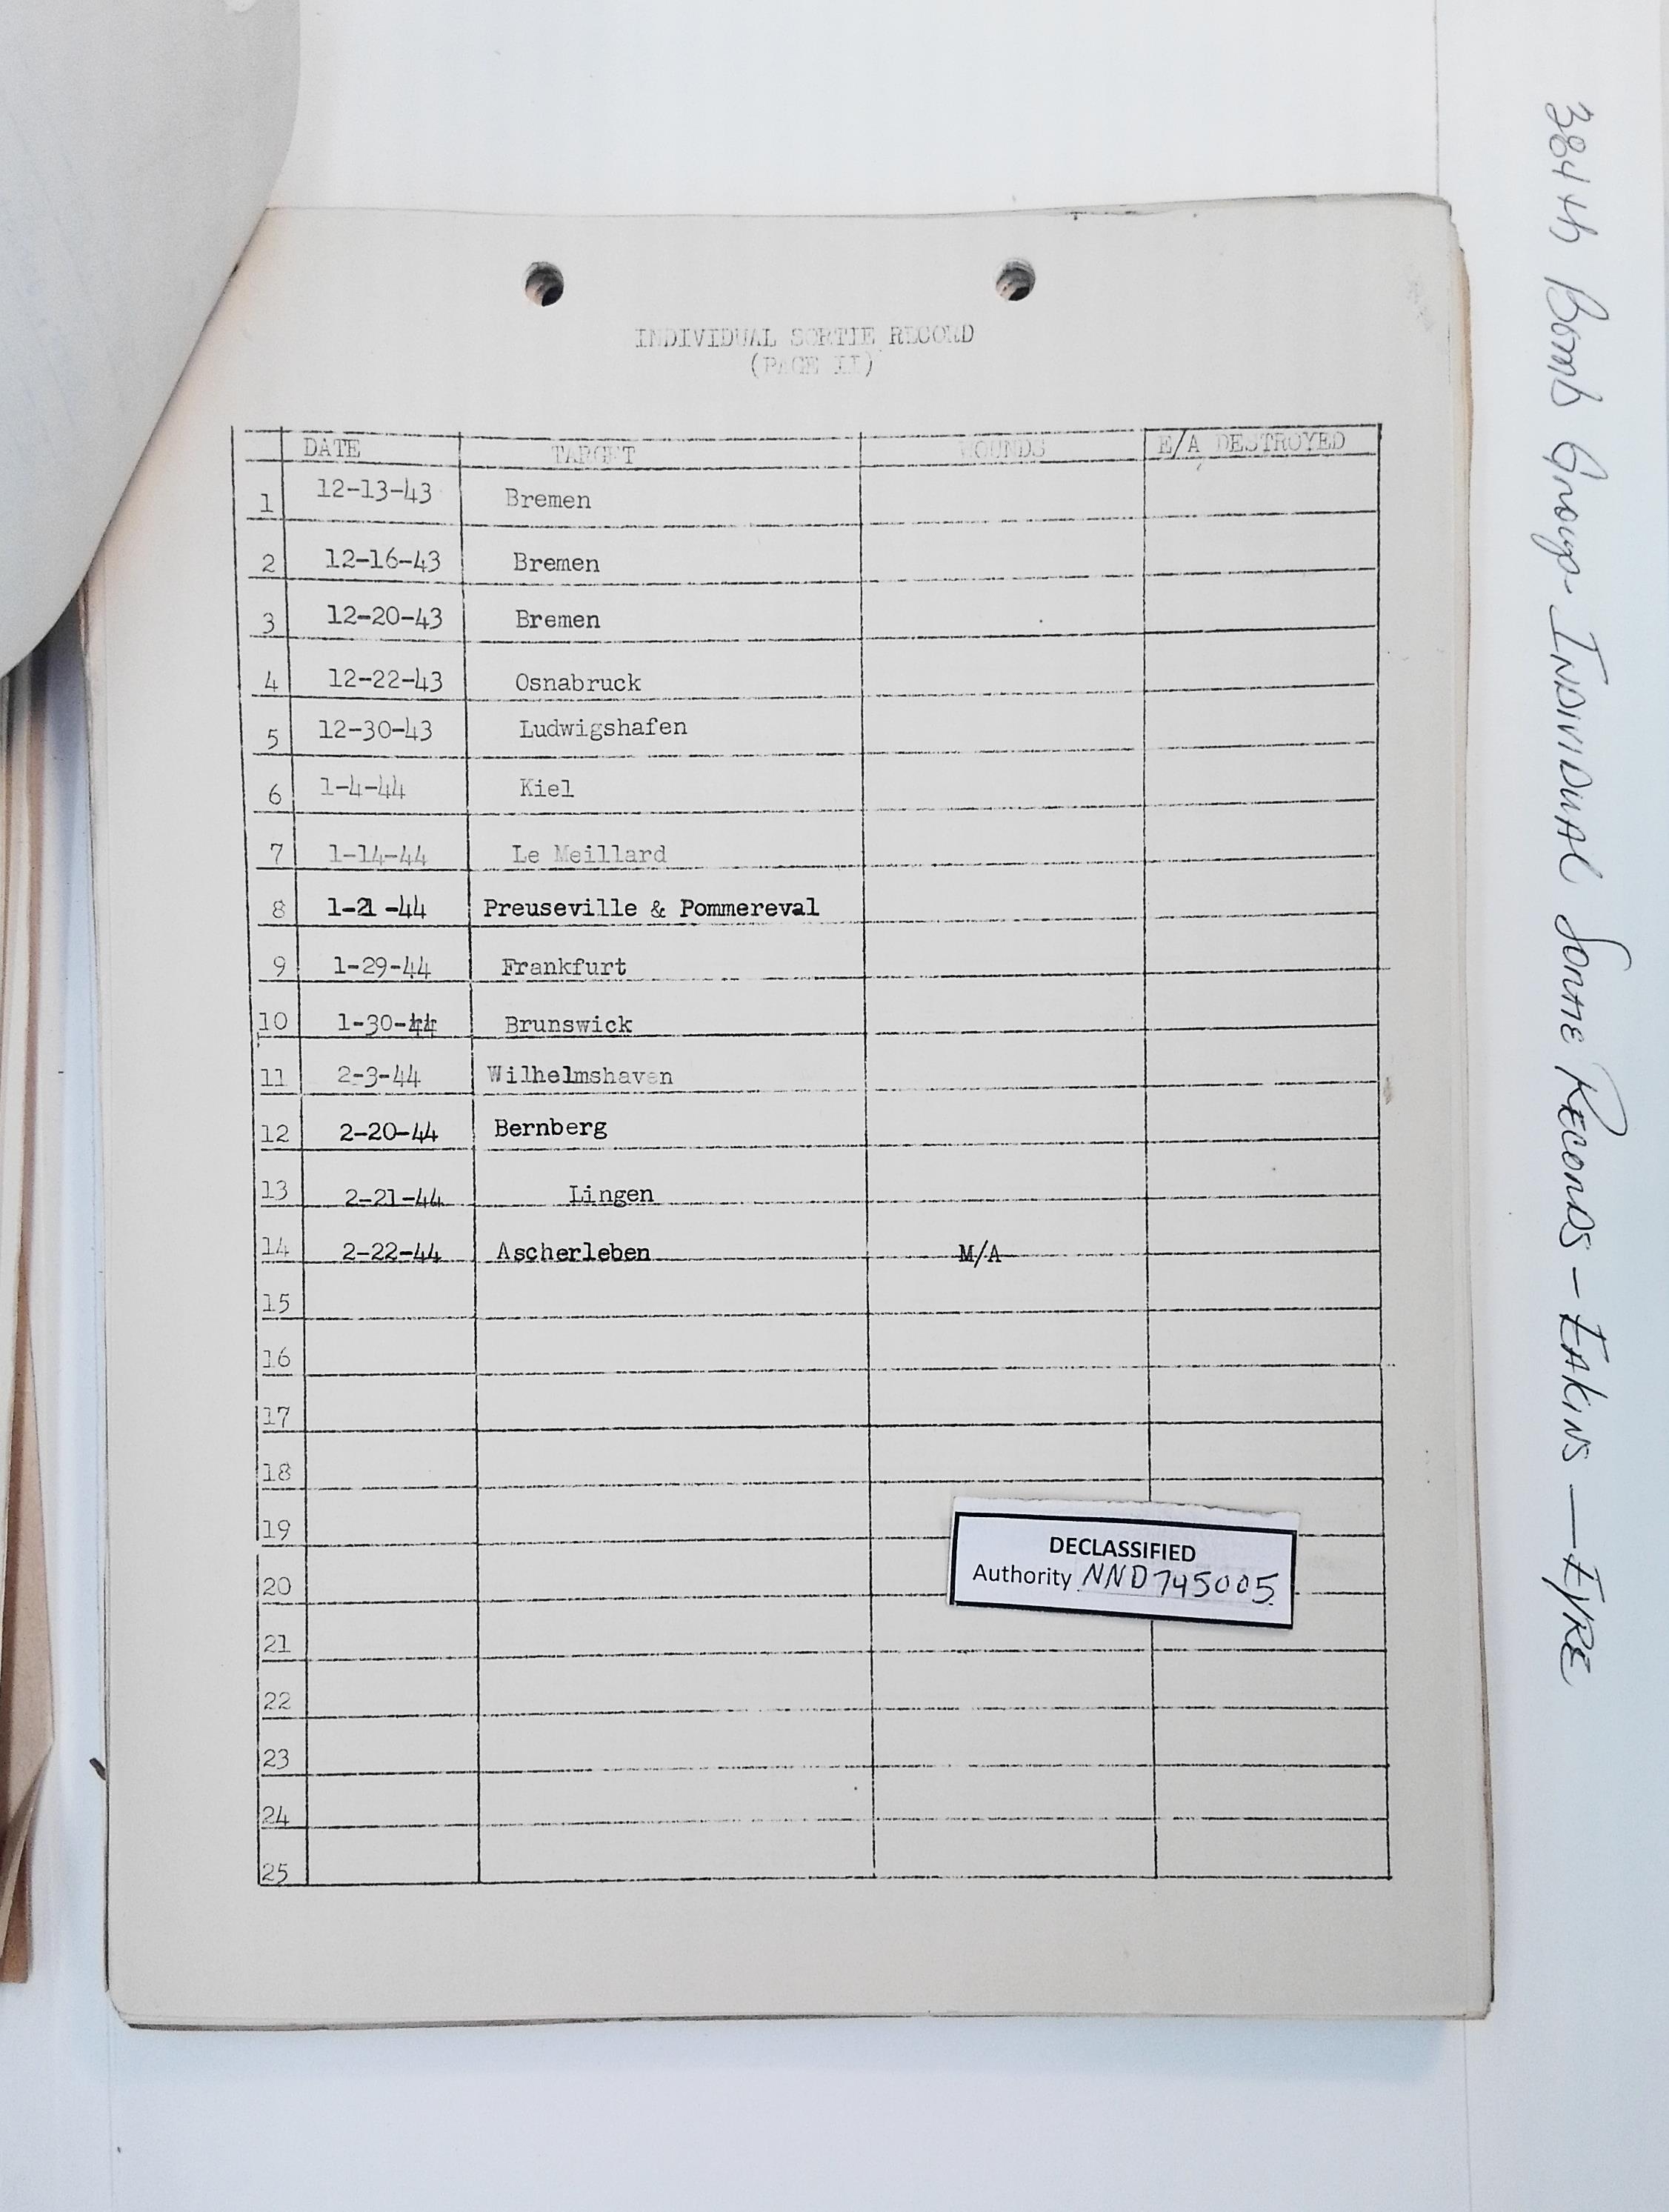 INDIVIDUAL SORTIE RECORD
(PAGE II)
DATE TARGET WOUNDS E/A DESTROYED
1 12-13-43 Bremen
2 12-16-43 Bremen
3 12-20-43 Bremen
4 12-22-43 Osnabruck
5 12-30-43 Ludwigshafen
6 1-4-44 Kiel
7 1-14-44 Le Meillard
8 1-21-44 Preuseville & Pommereval
9 1-29-44 Frankfurt
10 1-30-44 Brunswick
11 2-3-44 Wilhelmshaven
12 2-20-44 Bernberg
13 2-21-44 Lingen
14 2-22-44 Ascherleben M/A
15
16
17
18
19
20
21
22
23
24
25
DECLASSIFIED
Authority NND745005
384th Bomb Group - INDIVIDUAL SORTIE RECORDS - EAKINS — EYRE